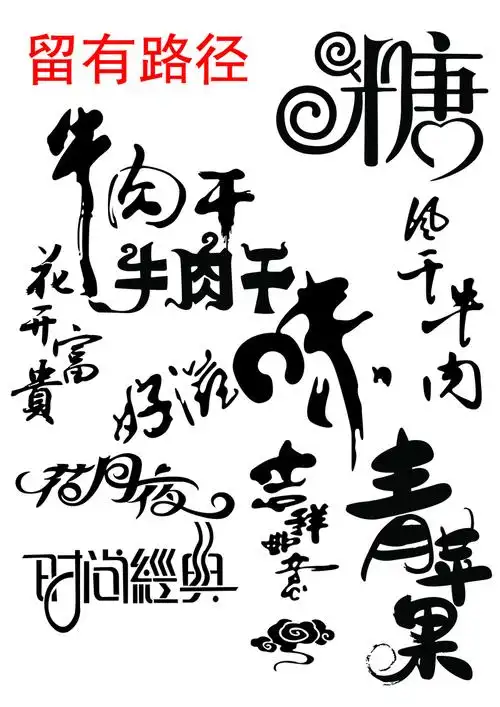 留有路径
糖
牛肉干
牛肉干
风干牛肉
花开富貴
好滋味
吉祥如意
青苹果
胡月夜
时尚經典